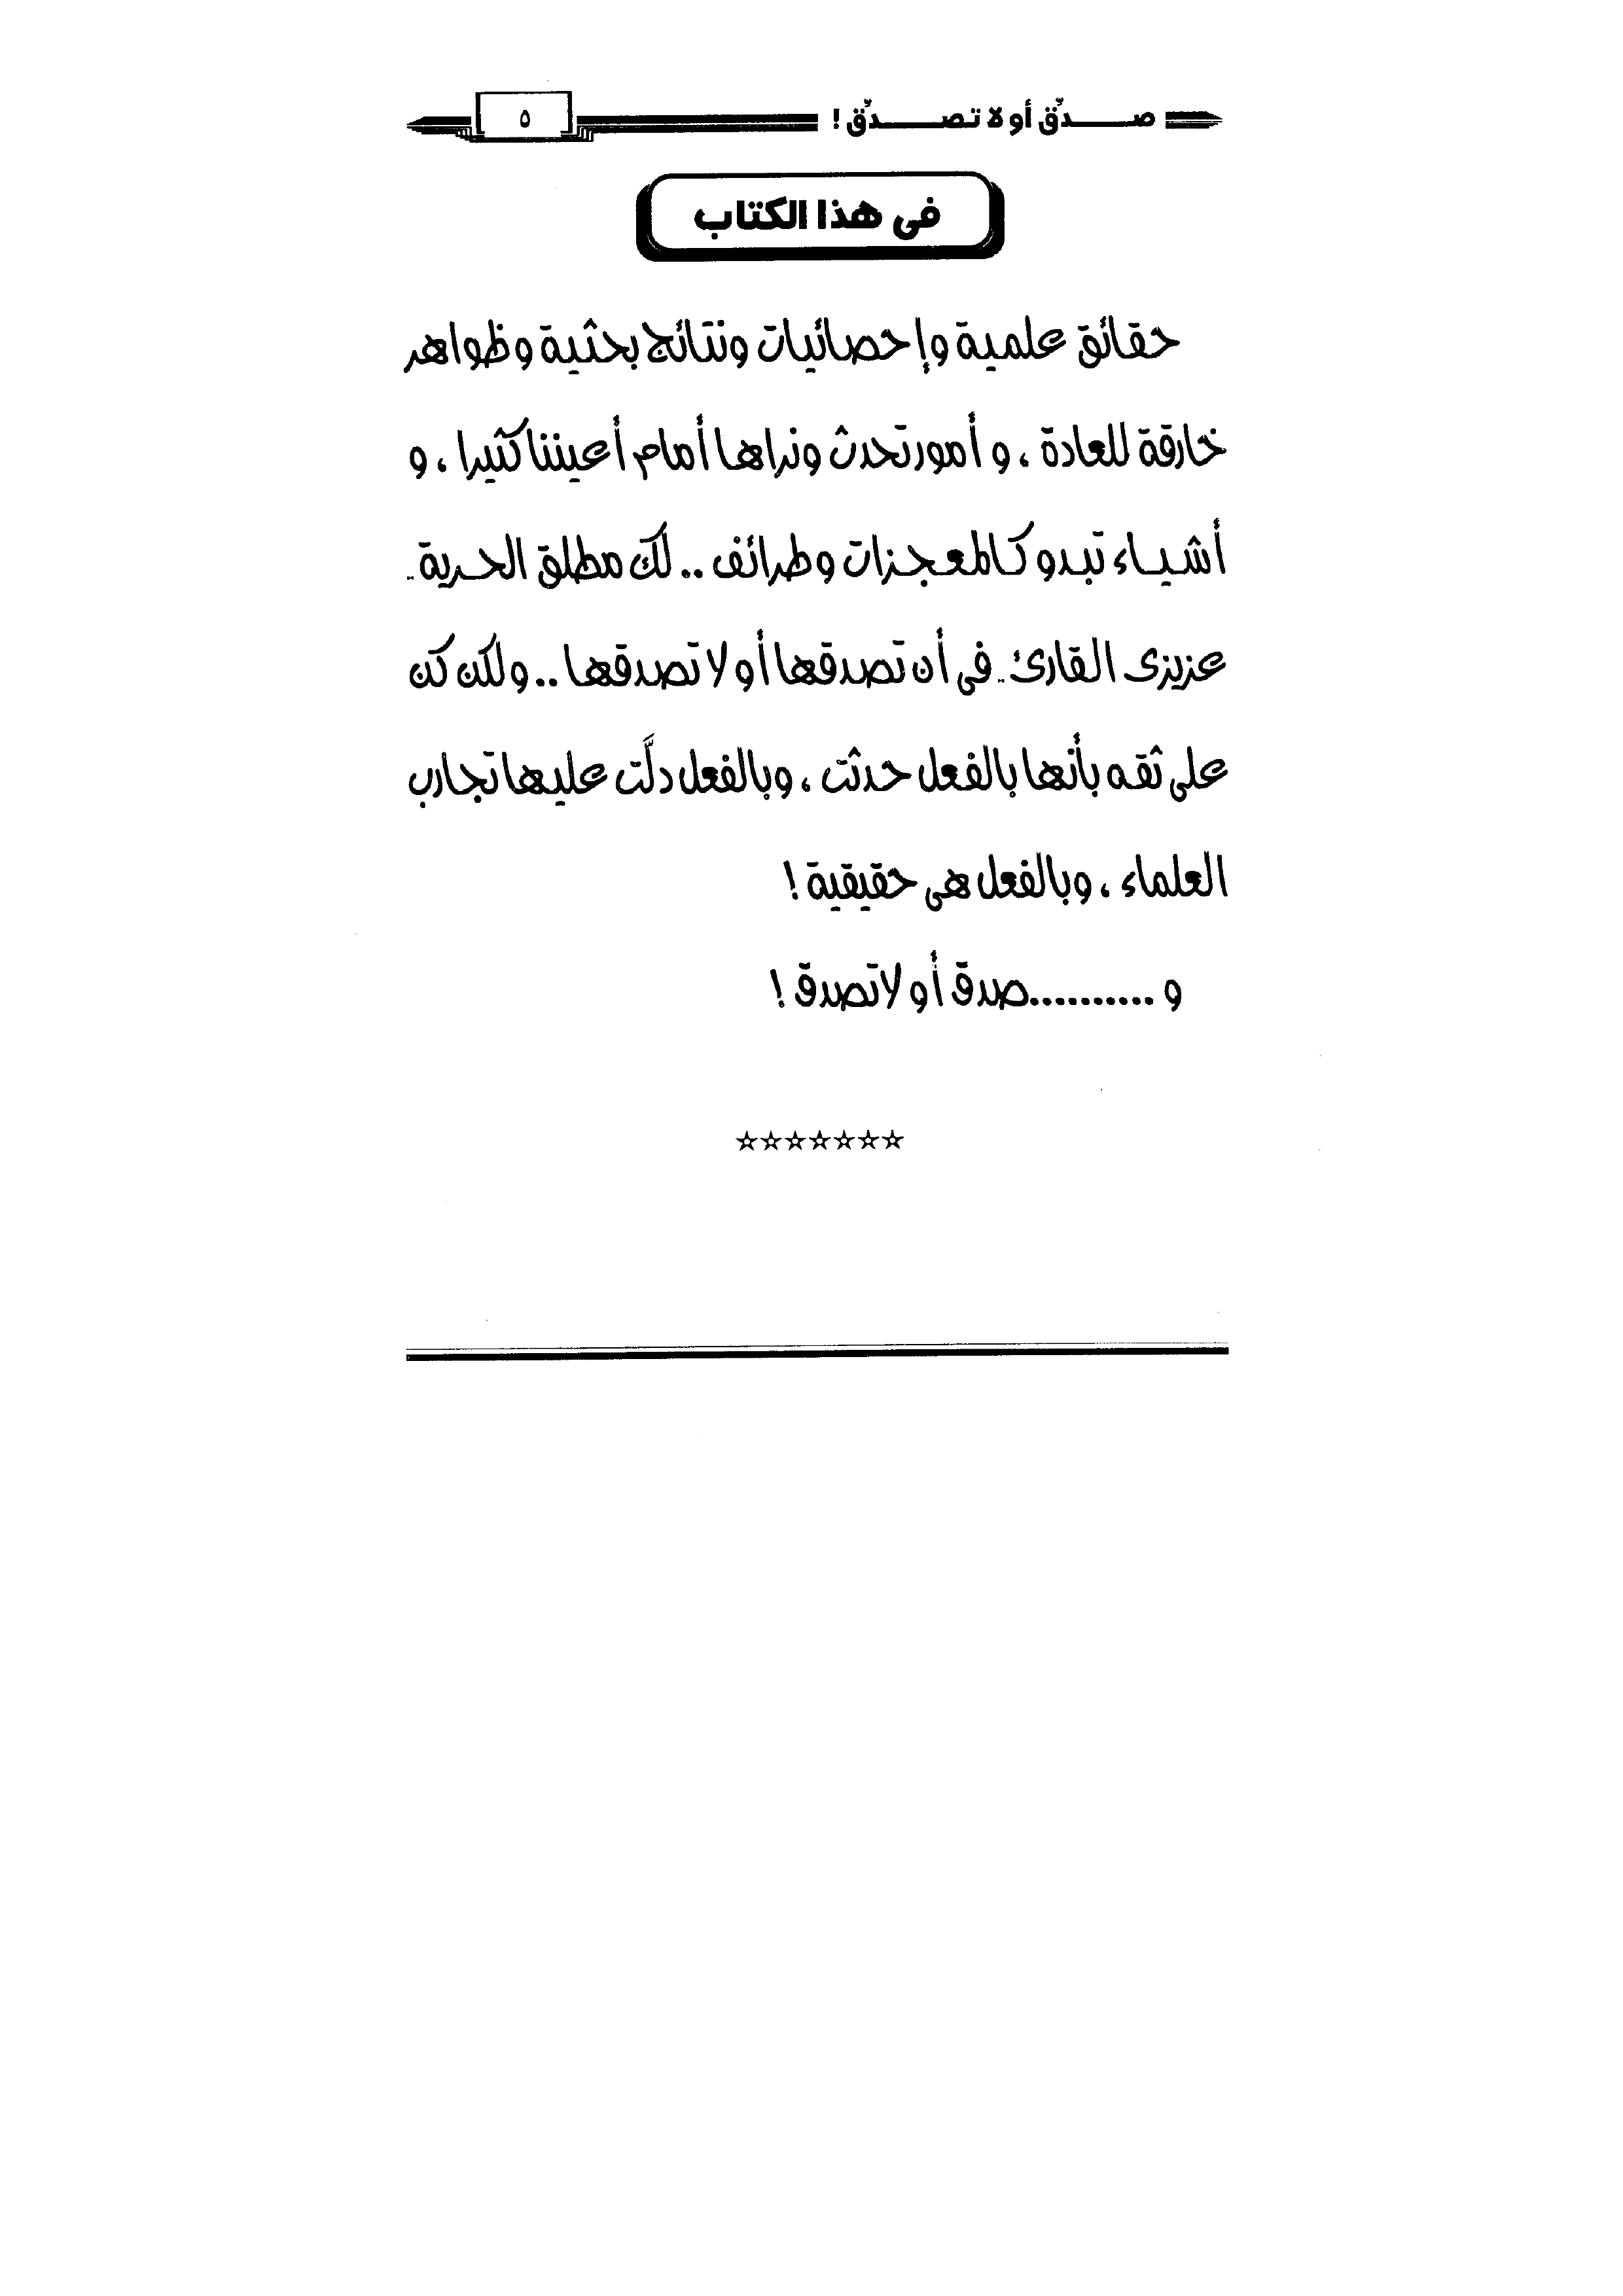 صـدِّق أو لا تصـدِّق !
٥
فى هذا الكتاب
حقائق علمية وإحصائيات ونتائج بحثية وظواهر
خارقة للعادة ، و أمور تحدث ونراها أمام أعيننا كثيرا ، و
أشياء تبدو كالمعجزات وطرائف .. لك مطلق الحرية ..
عزيزى القارئ .. فى أن تصدقها أو لا تصدقها .. ولكن كن
على ثقه بأنها بالفعل حدثت ، وبالفعل دلَّت عليها تجارب
العلماء ، وبالفعل هى حقيقية !
و ...........صدق أو لا تصدق !
☆☆☆☆☆☆☆